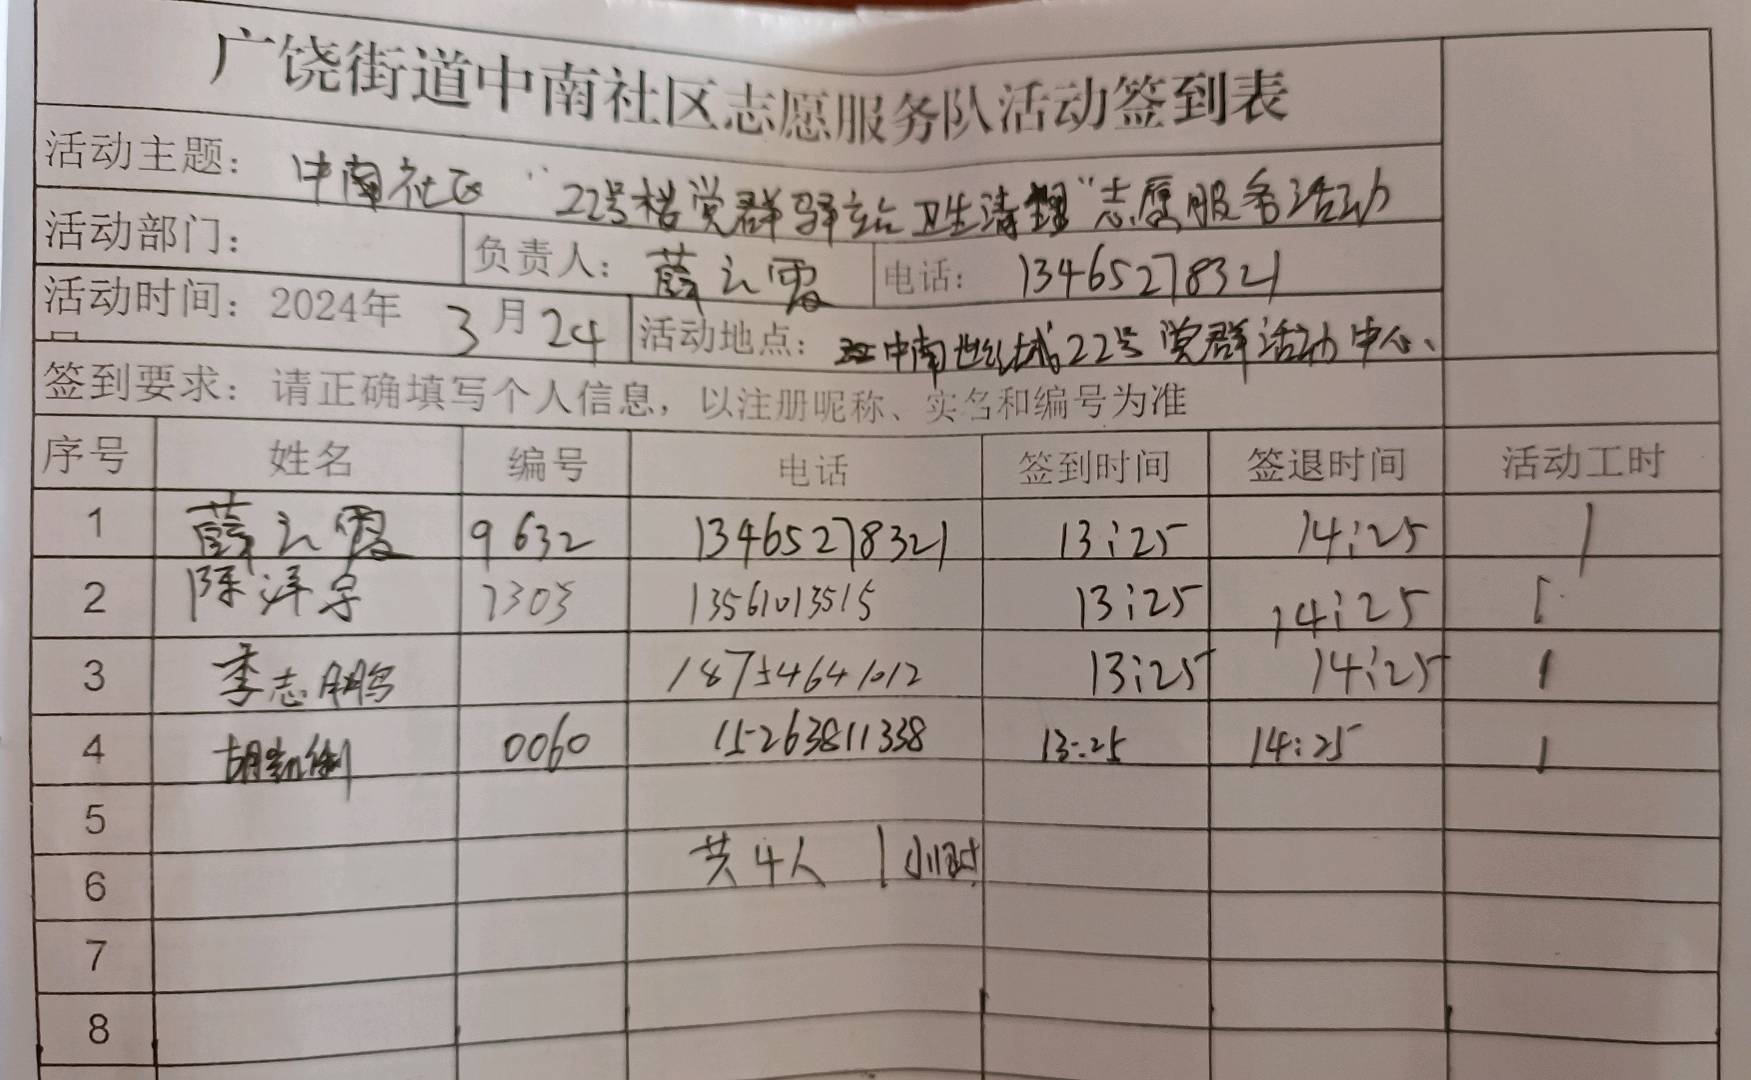 广饶街道中南社区志愿服务队活动签到表
活动主题: 中南社区“22号楼党群驿站卫生清理”志愿服务活动
活动部门: 负责人: 薛云霞 电话: 13465278321
活动时间: 2024年 3月24 活动地点: 中南世纪城22号党群活动中心、
签到要求: 请正确填写个人信息，以注册昵称、实名和编号为准
序号 姓名 编号 电话 签到时间 签退时间 活动工时
1 薛云霞 9632 13465278321 13:25 14:25 1
2 陈洋宇 7303 13561013515 13:25 14:25 1
3 季志鹏 18754641012 13:25 14:25 1
4 胡 0060 15263811338 13:25 14:25 1
5
6 共4人 1小时
7
8